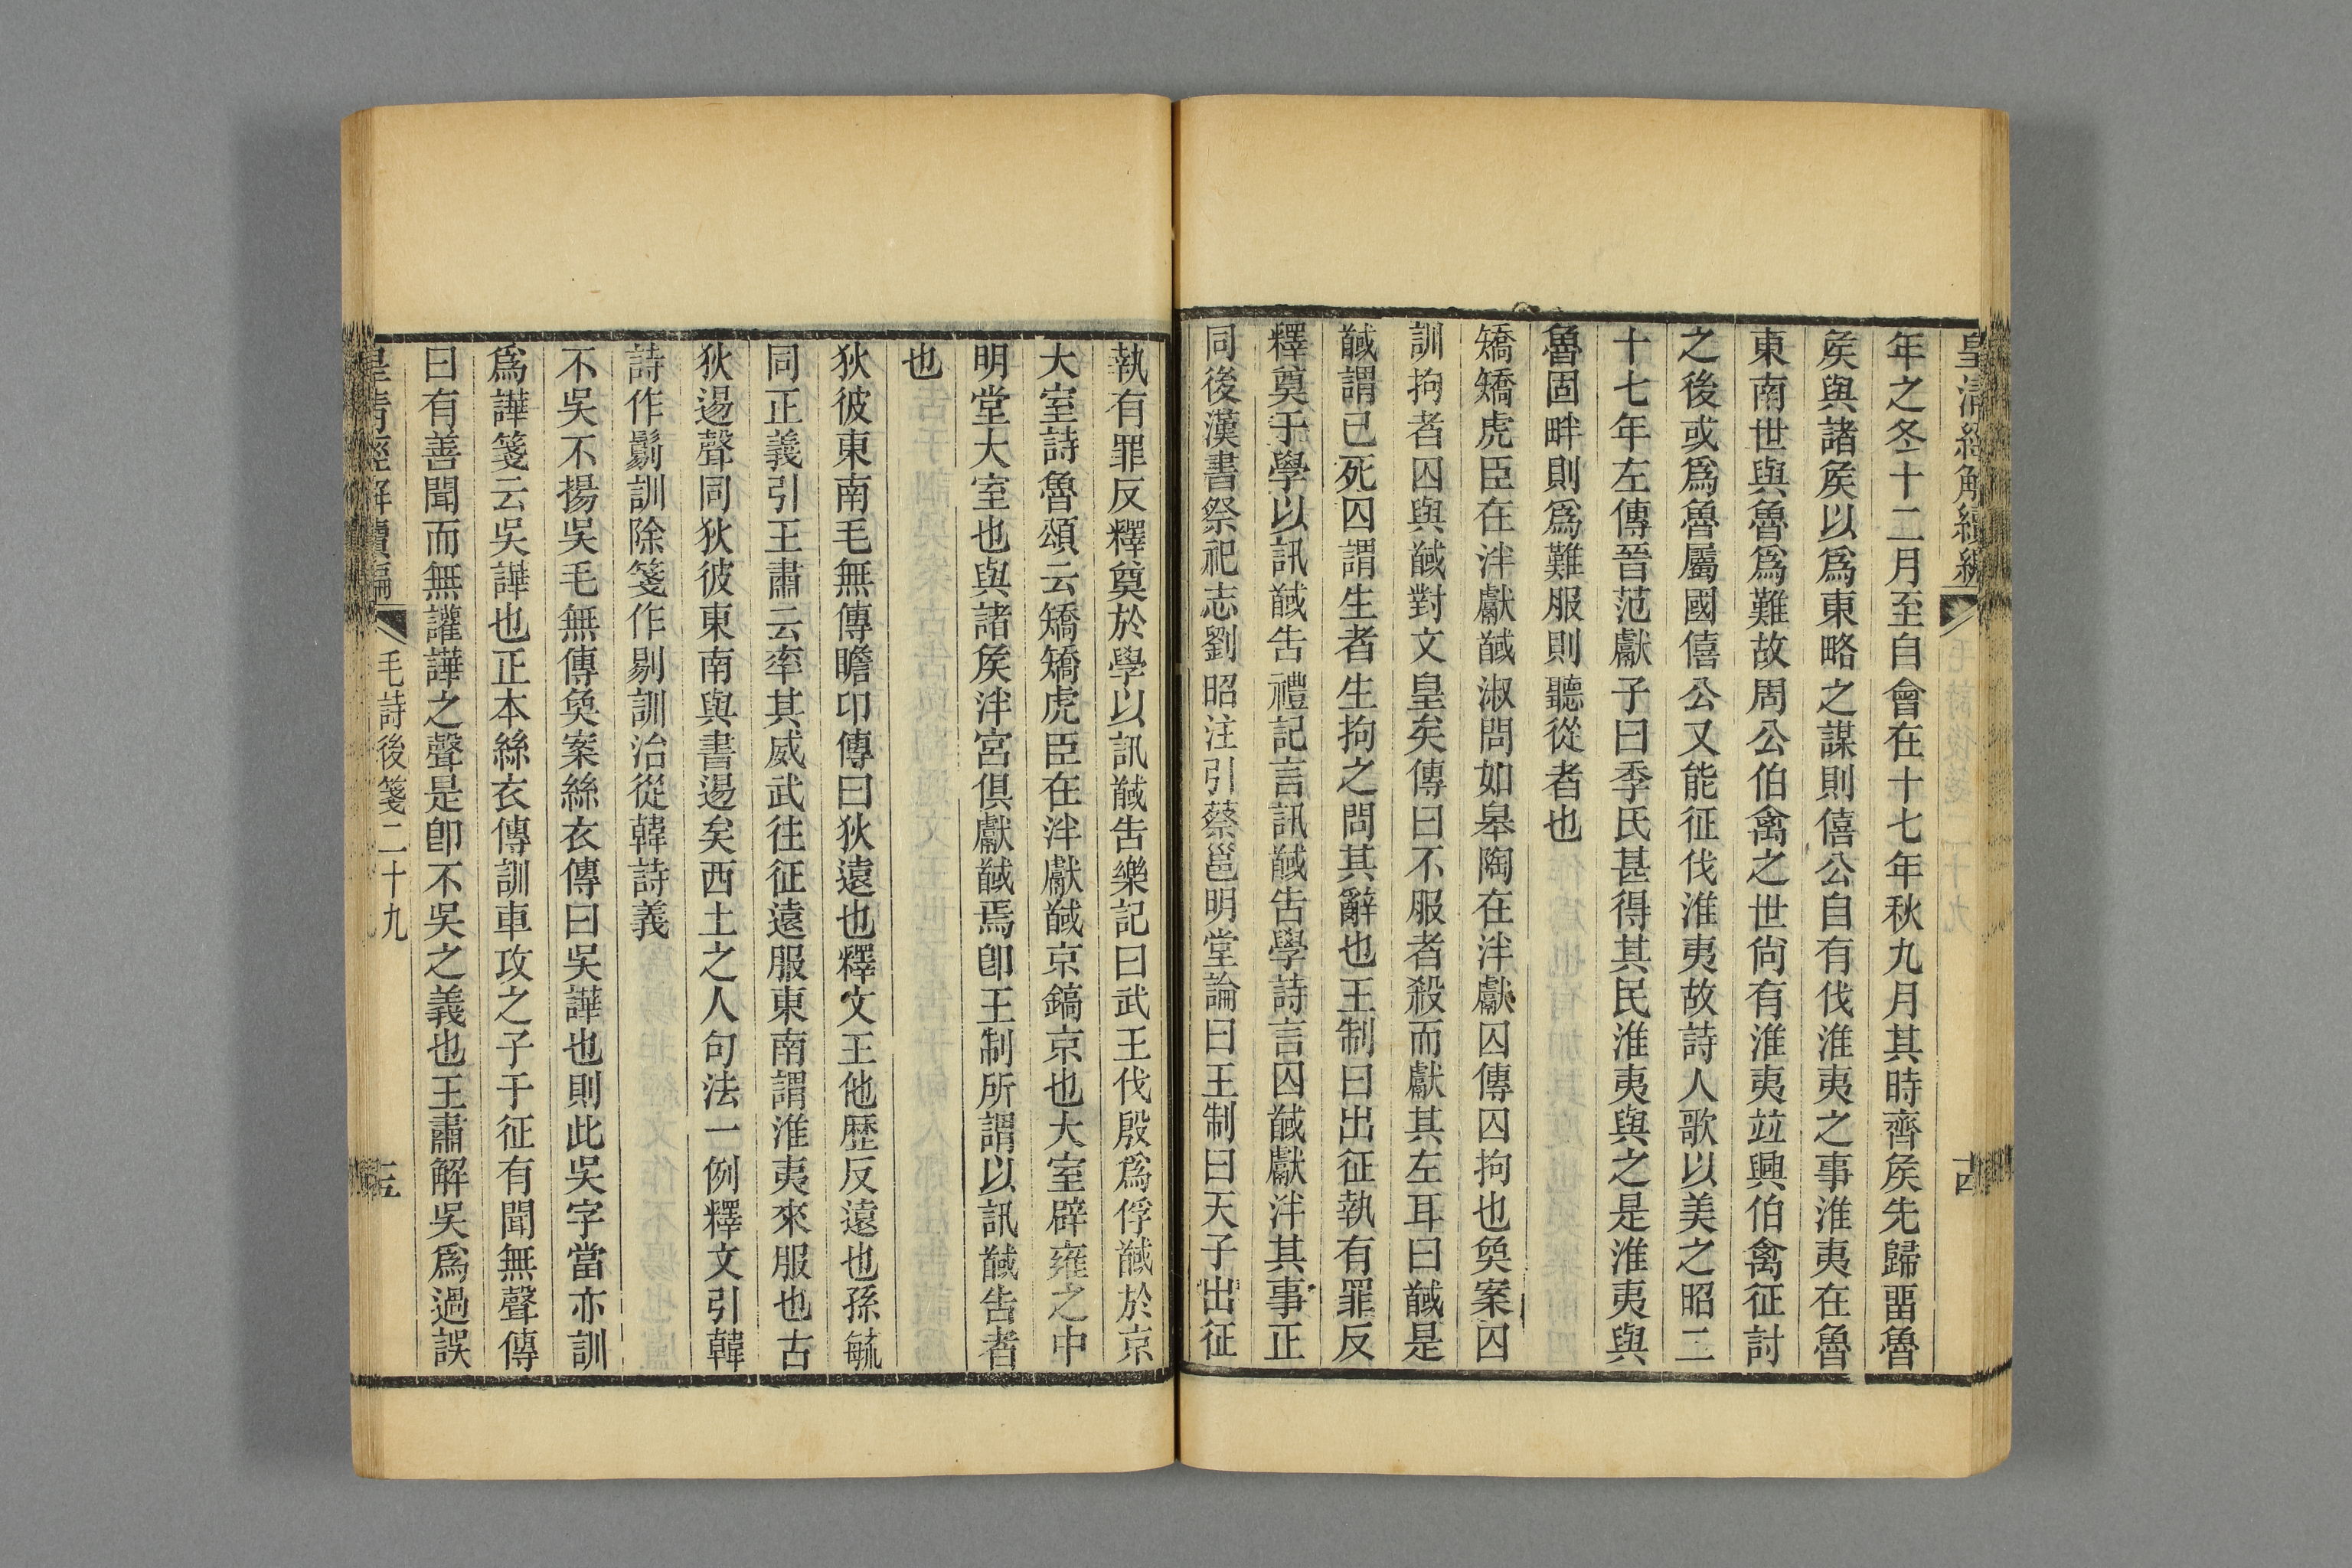 皇清經解續編
十四
年之冬十二月至自會在十七年秋九月其時齊矦先歸畱魯
矦與諸矦以爲東略之謀則僖公自有伐淮夷之事淮夷在魯
東南世與魯爲難故周公伯禽之世尙有淮夷竝興伯禽征討
之後或爲魯屬國僖公又能征伐淮夷故詩人歌以美之昭二
十七年左傳晉范獻子曰季氏甚得其民淮夷與之是淮夷與
魯固畔則爲難服則聽從者也
矯矯虎臣在泮獻馘淑問如皋陶在泮獻囚傳囚拘也奐案囚
訓拘者囚與馘對文皇矣傳曰不服者殺而獻其左耳曰馘是
馘謂已死囚謂生者生拘之問其辭也王制曰出征執有罪反
釋奠于學以訊馘告禮記言訊馘告學詩言囚馘獻泮其事正
同後漢書祭祀志劉昭注引蔡邕明堂論曰王制曰天子出征
執有罪反釋奠於學以訊馘告樂記曰武王伐殷爲俘馘於京
大室詩魯頌云矯矯虎臣在泮獻馘京鎬京也大室辟雍之中
明堂大室也與諸矦泮宮俱獻馘焉卽王制所謂以訊馘告者
也
狄彼東南毛無傳瞻卬傳曰狄遠也釋文王他歷反遠也孫毓
同正義引王肅云率其威武往征遠服東南謂淮夷來服也古
狄逷聲同狄彼東南與書逷矣西土之人句法一例釋文引韓
詩作鬄訓除箋作剔訓治從韓詩義
不吳不揚吳毛無傳奐案絲衣傳曰吳譁也則此吳字當亦訓
爲譁箋云吳譁也正本絲衣傳訓車攻之子于征有聞無聲傳
曰有善聞而無讙譁之聲是卽不吳之義也王肅解吳爲過誤
皇清經解續編
毛詩後箋二十九
五